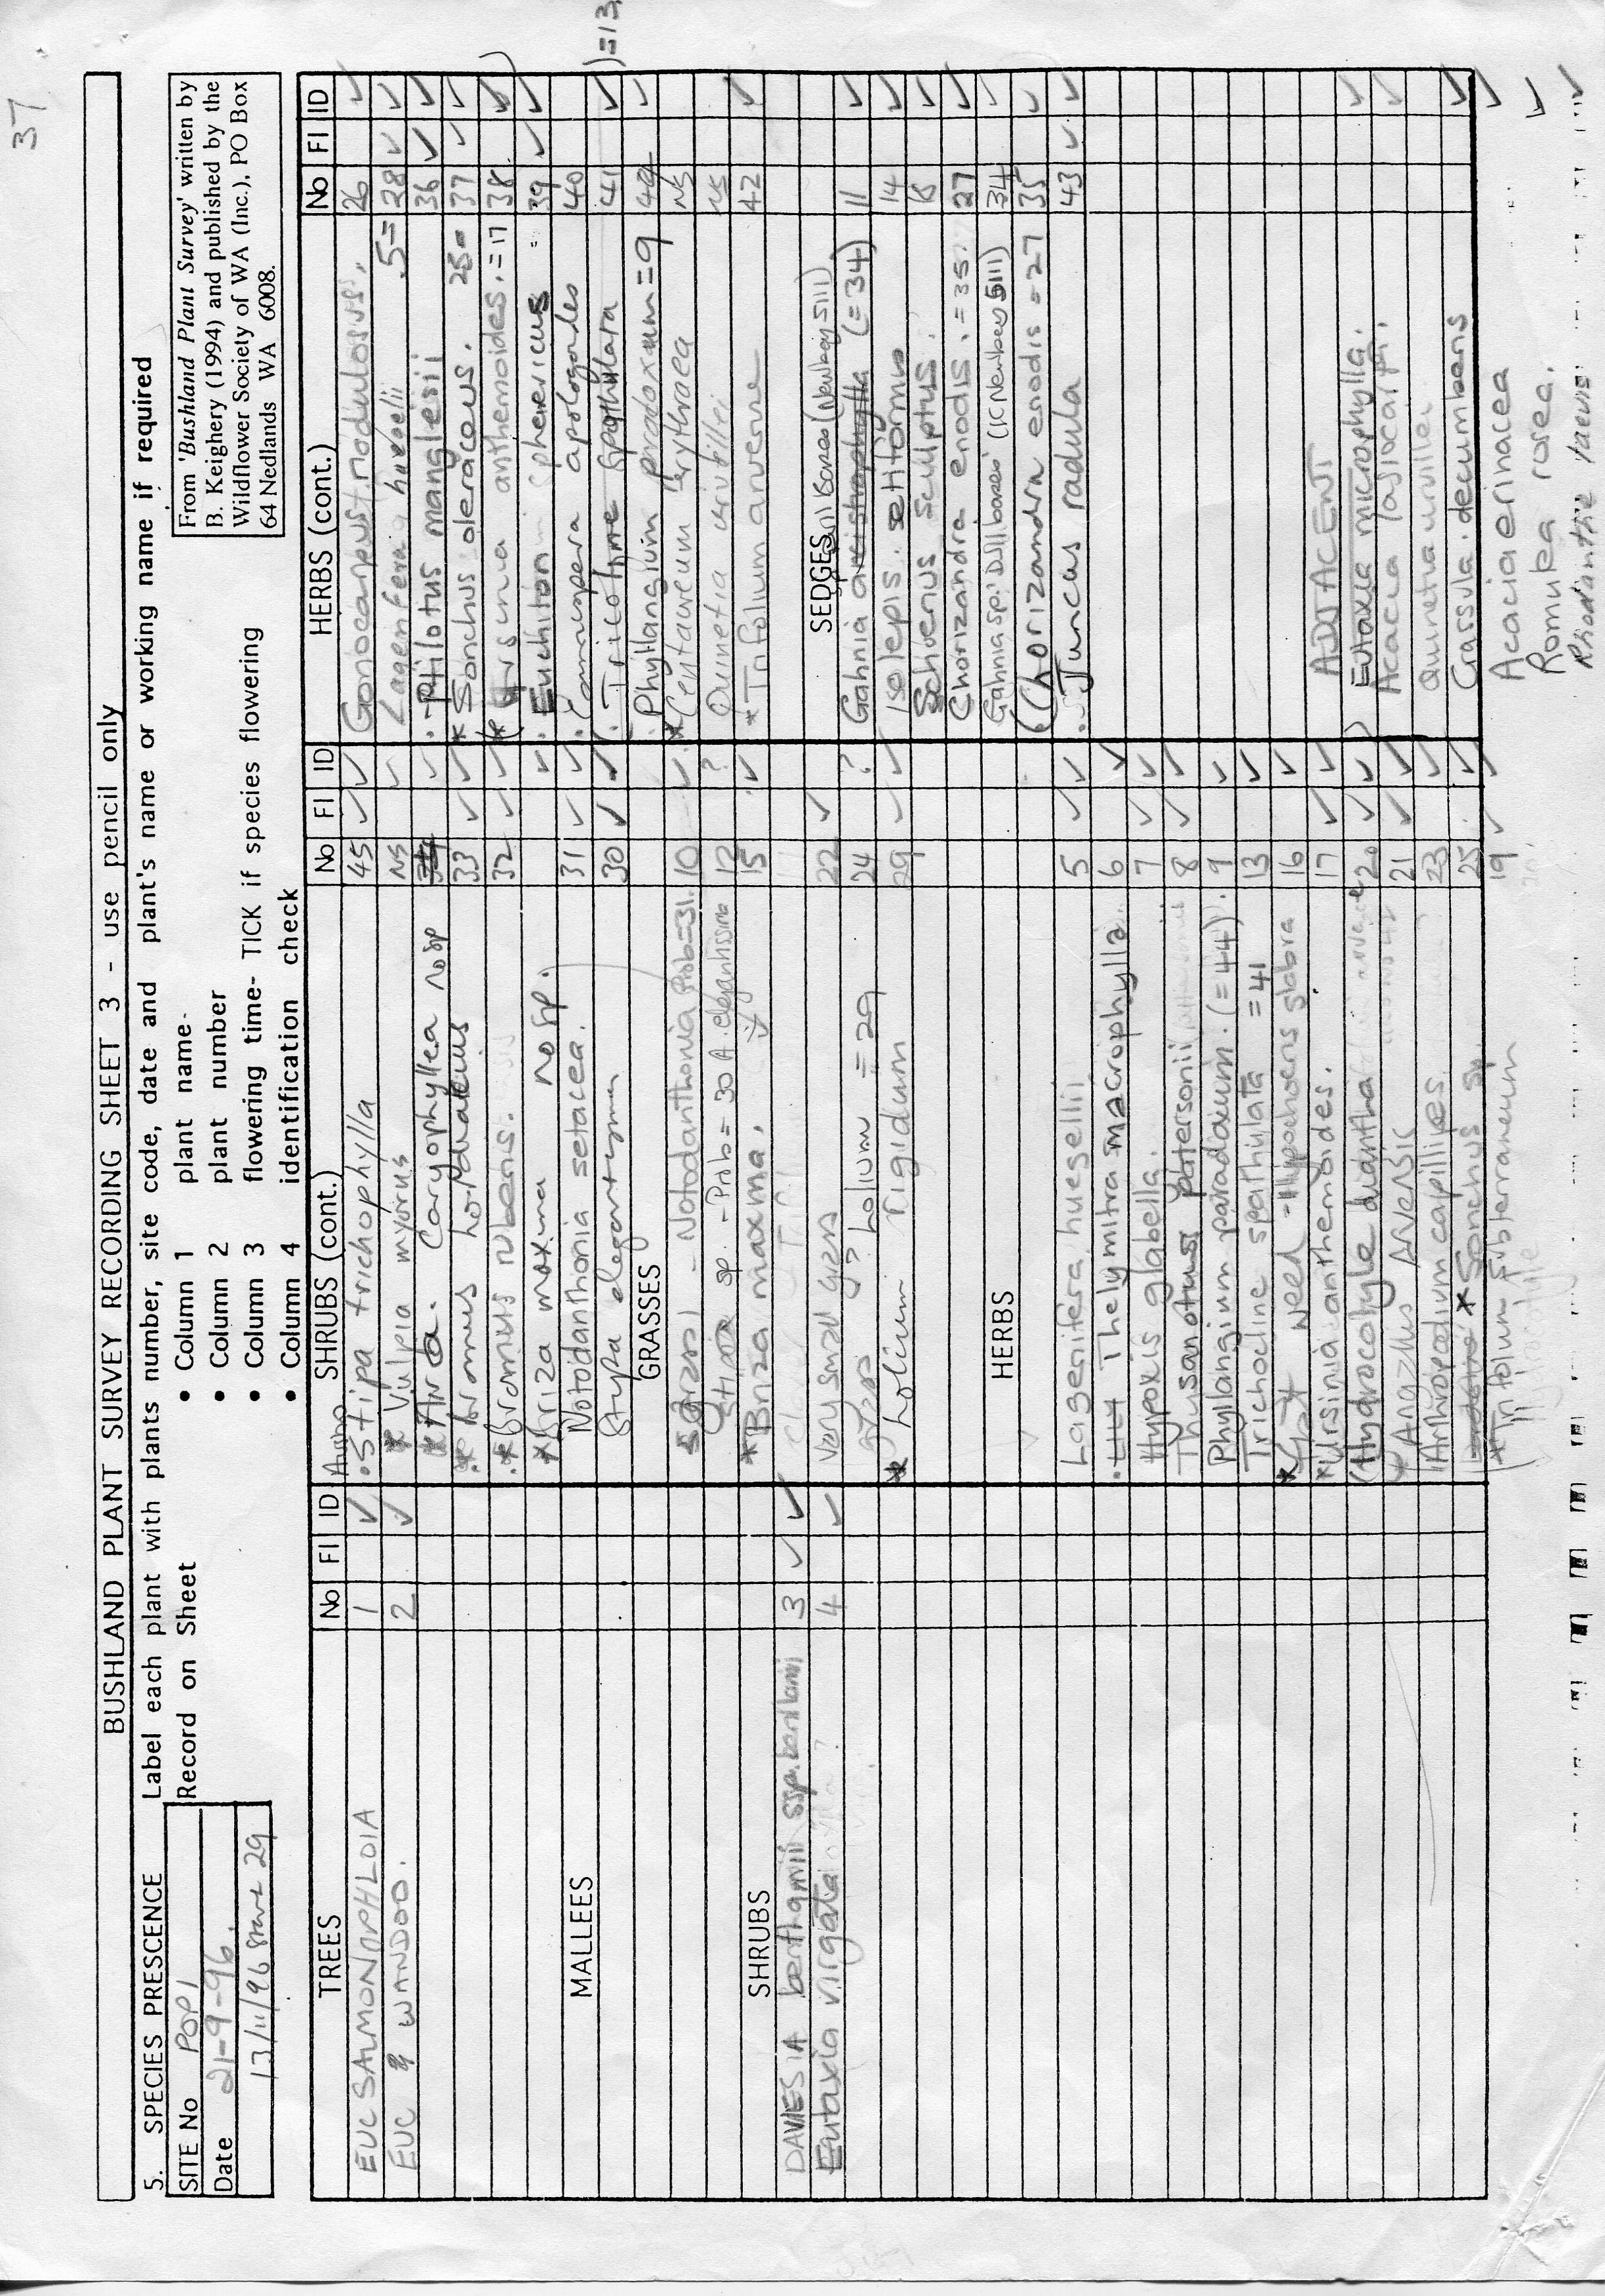 37
BUSHLAND PLANT SURVEY RECORDING SHEET 3 - use pencil only
5. SPECIES PRESCENCE
Label each plant with plants number, site code, date and plant's name or working name if required
SITE No POP1
Date 21-9-96.
13/11/96
Record on Sheet
• Column 1 plant name-
• Column 2 plant number
• Column 3 flowering time- TICK if species flowering
• Column 4 identification check
From 'Bushland Plant Survey' written by
B. Keighery (1994) and published by the
Wildflower Society of WA (Inc.), PO Box
64 Nedlands WA 6008.
TREES No Fl ID
EUC SALMONOPHLOIA 1 ✓
EUC WANDOO. 2 ✓
MALLEES
SHRUBS
DAVIESIA benthamii ssp. benthamii 3 ✓ ✓
Eutaxia virgata 4 ✓
SHRUBS (cont.) No Fl ID
Stipa trichophylla 45 ✓ ✓
* Vulpia myorus NS ✓
Caryophyllea no sp ✓
* bromus hordeaceus 33 ✓ ✓
* bromus rubens. 32 ✓ ✓
* briza maxima no sp. ✓
Notodanthonia setacea. 31 ✓ ✓
Stipa elegantissima 30 ✓ ✓
GRASSES
- Notodanthonia Prob=31. 10 ✓
sp. - Prob= 30 A. elegantissima 12 ?
* Briza maxima. 15 ✓
Very small grass 22 ✓
grass => Lolium = 29 24 ?
* Lolium rigidum 29 ✓ ✓
HERBS
Lagenifera huegelii 5 ✓ ✓
Thelymitra macrophylla. 6 ✓
Hypoxis glabella. 7 ✓ ✓
Thysanotus patersonii 8 ✓ ✓
Phyllangium paradoxum. (=44). 9 ✓
Tricholine spathulata = 41 13 ✓
* Weed = Hypochoeris glabra 16 ✓
* Ursinia anthemoides. 17 ✓ ✓
Hydrocotyle diantha 20 ✓ ✓
* Anagallis arvensis 21 ✓ ✓
Arthropodium capillipes 23 ✓
* Sonchus sp. 25 ✓
* Trifolium subterraneum 19 ✓ ✓
HERBS (cont.) No Fl ID
Gonocarpus nodulosus. 26 ✓
Lagenifera huegelii 5= 28 ✓ ✓
Ptilotus manglesii 36 ✓ ✓
* Sonchus oleraceus. 25= 37 ✓ ✓
* Ursinia anthemoides. =17 38 ✓
Euchiton sphaericus = 39 ✓ ✓
Comespera apologordes 40
Tricoline spathulata 41 ✓ )=13
Phyllangium paradoxum =9 ✓
* Centaureum erythraea NS
Quinetia urvillei NS
* Trifolium arvense 42 ✓
SEDGES
Gahnia aristraphylla (=34) 11 ✓
Isolepis. setiformis 14 ✓
Schoenus sculptus. 18 ✓
Chorizandra enodis. =35. 27 ✓
Gahnia sp. (K Newbey 5111) 34 ✓
Chorizandra enodis = 27 35 ✓
Juncus radula 43 ✓ ✓
ADJACENT
Eutaxia microphylla. ✓
Acacia lasiocarpa. ✓
Quinetia urvillei
Crassula. decumbens ✓
Acacia erinacea ✓
Romulea rosea. ✓
Rhodanthe laevis ✓